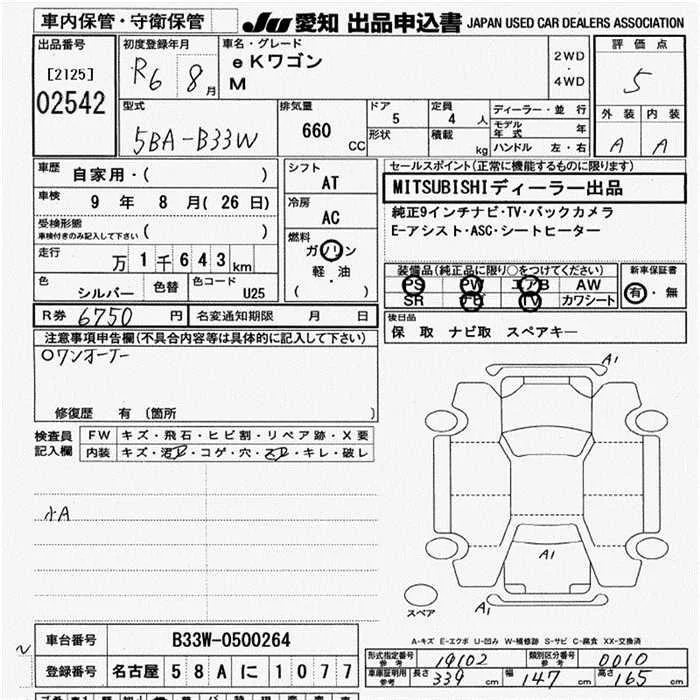 車内保管・守衛保管
JU 愛知 出品申込書 JAPAN USED CAR DEALERS ASSOCIATION
出品番号
[2125]
02542
初度登録年月
R6 8月
車名・グレード
eKワゴン
M
2WD
・
4WD
評価点
5
外装 内装
A A
型式
5BA-B33W
排気量
660 CC
ドア
5
形状
定員
4 人
積載 kg
ディーラー・並行
モデル年式 年
ハンドル 左・右
車歴 自家用・( )
車検 9年 8月(26日)
受検形態
車検付きのみ記入して下さい ( )
走行 万1千643km
色 シルバー 色替 色コード U25
シフト
AT
冷房
AC
燃料
ガソリン
軽・油
( )
セールスポイント(正常に機能するものに限ります)
MITSUBISHIディーラー出品
純正9インチナビ・TV・バックカメラ
E-アシスト・ASC・シートヒーター
装備品(純正品に限り○をつけてください)
PS PW エアB AW
SR ナビ TV カワシート
新車保証書
有・無
R券 6750円 名変通知期限 月 日
後日品
保 取 ナビ取 スペアキー
注意事項申告欄(不具合内容等は具体的に記入して下さい)
○ワンオーナー
修復歴 有 (箇所 )
検査員記入欄
FW キズ・飛石・ヒビ割・リペア跡・X要
内装 キズ・汚レ・コゲ・穴・スレ・キレ・破レ
小A
A1
A1
A1
スペア
A-キズ E-エクボ U-凹み W-補修跡 S-サビ C-腐食 XX-交換済
車台番号 B33W-0500264
登録番号 名古屋 58Aに1077
形式指定番号 参考 19102 類別区分番号 参考 0010
車庫証明用 参考 長さ 339cm 幅 147cm 高さ 165cm